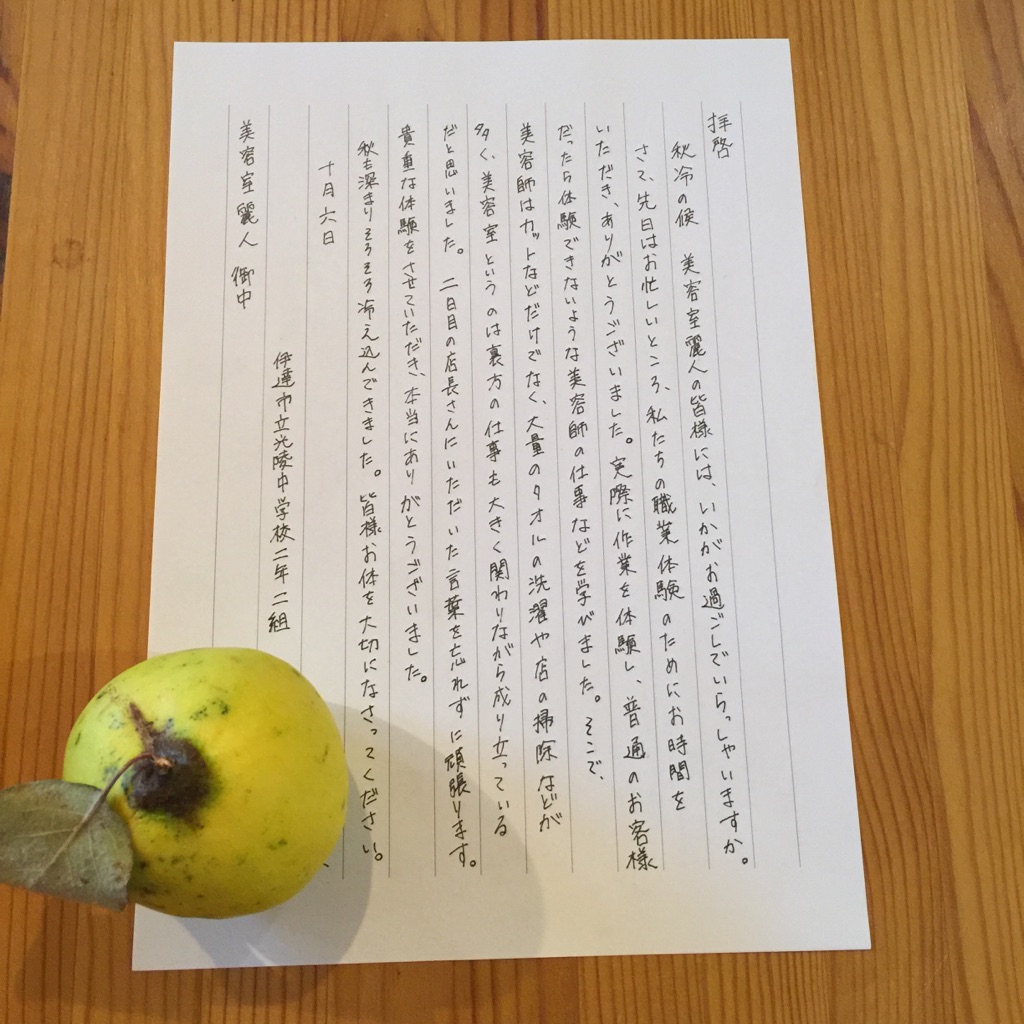 拝啓
秋冷の候　美容室麗人の皆様には、いかがお過ごしでいらっしゃいますか。
さて、先日はお忙しいところ、私たちの職業体験のためにお時間を
いただき、ありがとうございました。実際に作業を体験し、普通のお客様
だったら体験できないような美容師の仕事などを学びました。そこで、
美容師はカットなどだけでなく、大量のタオルの洗濯や店の掃除などが
多く、美容室というのは裏方の仕事も大きく関わりながら成り立っている
だと思いました。二日目の店長さんにいただいた言葉を忘れずに頑張ります。
貴重な体験をさせていただき、本当にありがとうございました。
秋も深まりそろそろ冷え込んできました。皆様お体を大切になさってください。
十月六日
伊達市立光陵中学校二年二組
美容室麗人　御中